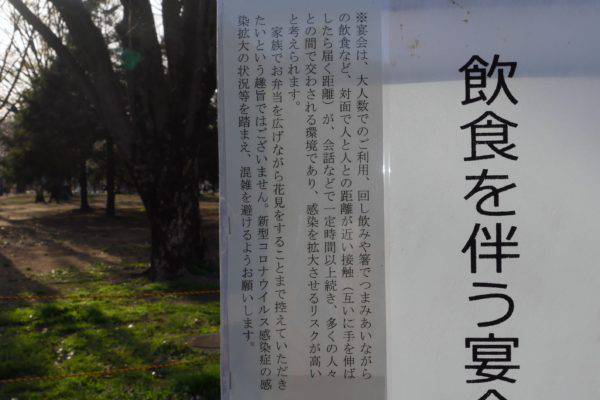 飲食を伴う宴会
※宴会は、大人数でのご利用、回し飲みや箸でつまみあいながら
の飲食など、対面で人と人との距離が近い接触（互いに手を伸ば
したら届く距離）が、会話などで一定時間以上続き、多くの人々
との間で交わされる環境であり、感染を拡大させるリスクが高い
と考えられます。
家族でお弁当を広げながら花見をすることまで控えていただき
たいという趣旨ではございません。新型コロナウイルス感染症の感
染拡大の状況等を踏まえ、混雑を避けるようお願いします。